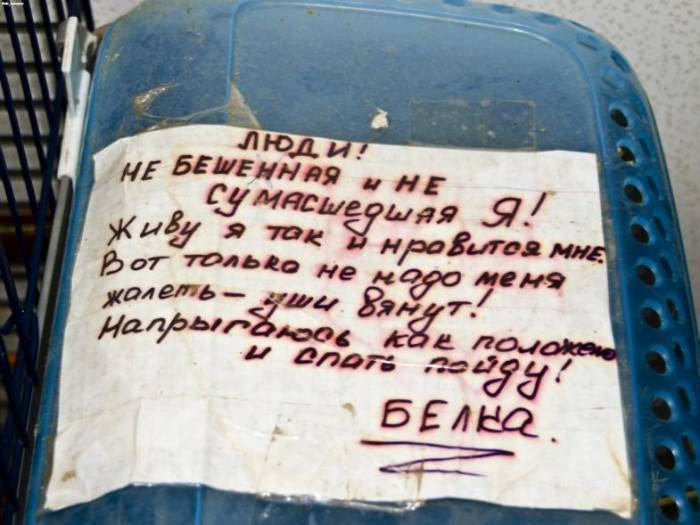 ЛЮДИ!
НЕ БЕШЕННАЯ и НЕ
СУМАСШЕДШАЯ Я!
Живу я так и нравится мне.
Вот только не надо меня
жалеть – уши вянут!
Напрыгаюсь как положено
и спать пойду!
БЕЛКА.